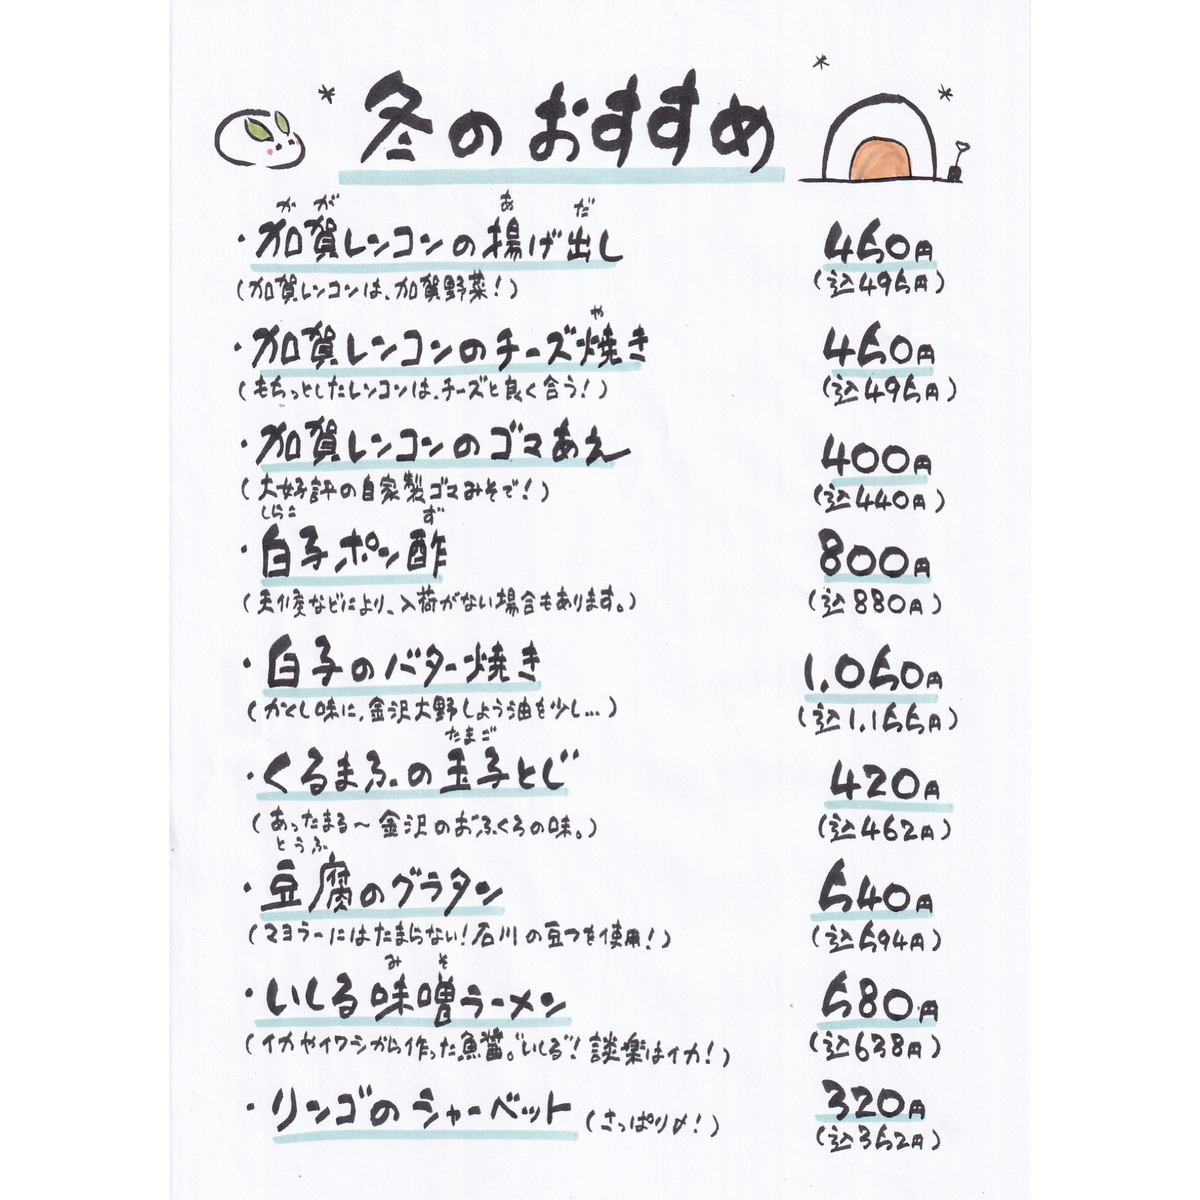 冬のおすすめ
がが あ だ
・加賀レンコンの揚げ出し 450円
(加賀レンコンは、加賀野菜!) (込495円)
や
・加賀レンコンのチーズ焼き 450円
(もちっとしたレンコンは、チーズと良く合う!) (込495円)
・加賀レンコンのゴマあえ 400円
(大好評の自家製ゴマみそで!) (込440円)
しらこ ず
・白子ポン酢 800円
(天候などにより、入荷がない場合もあります。) (込880円)
・白子のバター焼き 1,050円
(かくし味に、金沢大野しょう油を少し…) (込1,155円)
たまご
・くるまふの玉子とじ 420円
(あったまる〜金沢のおふくろの味。) (込462円)
とうふ
・豆腐のグラタン 540円
(マヨラーにはたまらない!石川の豆つを使用!) (込594円)
みそ
・いしる味噌ラーメン 580円
(イカやイワシから作った魚醤。"いしる"! 談楽はイカ!) (込638円)
・リンゴのシャーベット (さっぱり〆!) 320円
(込352円)